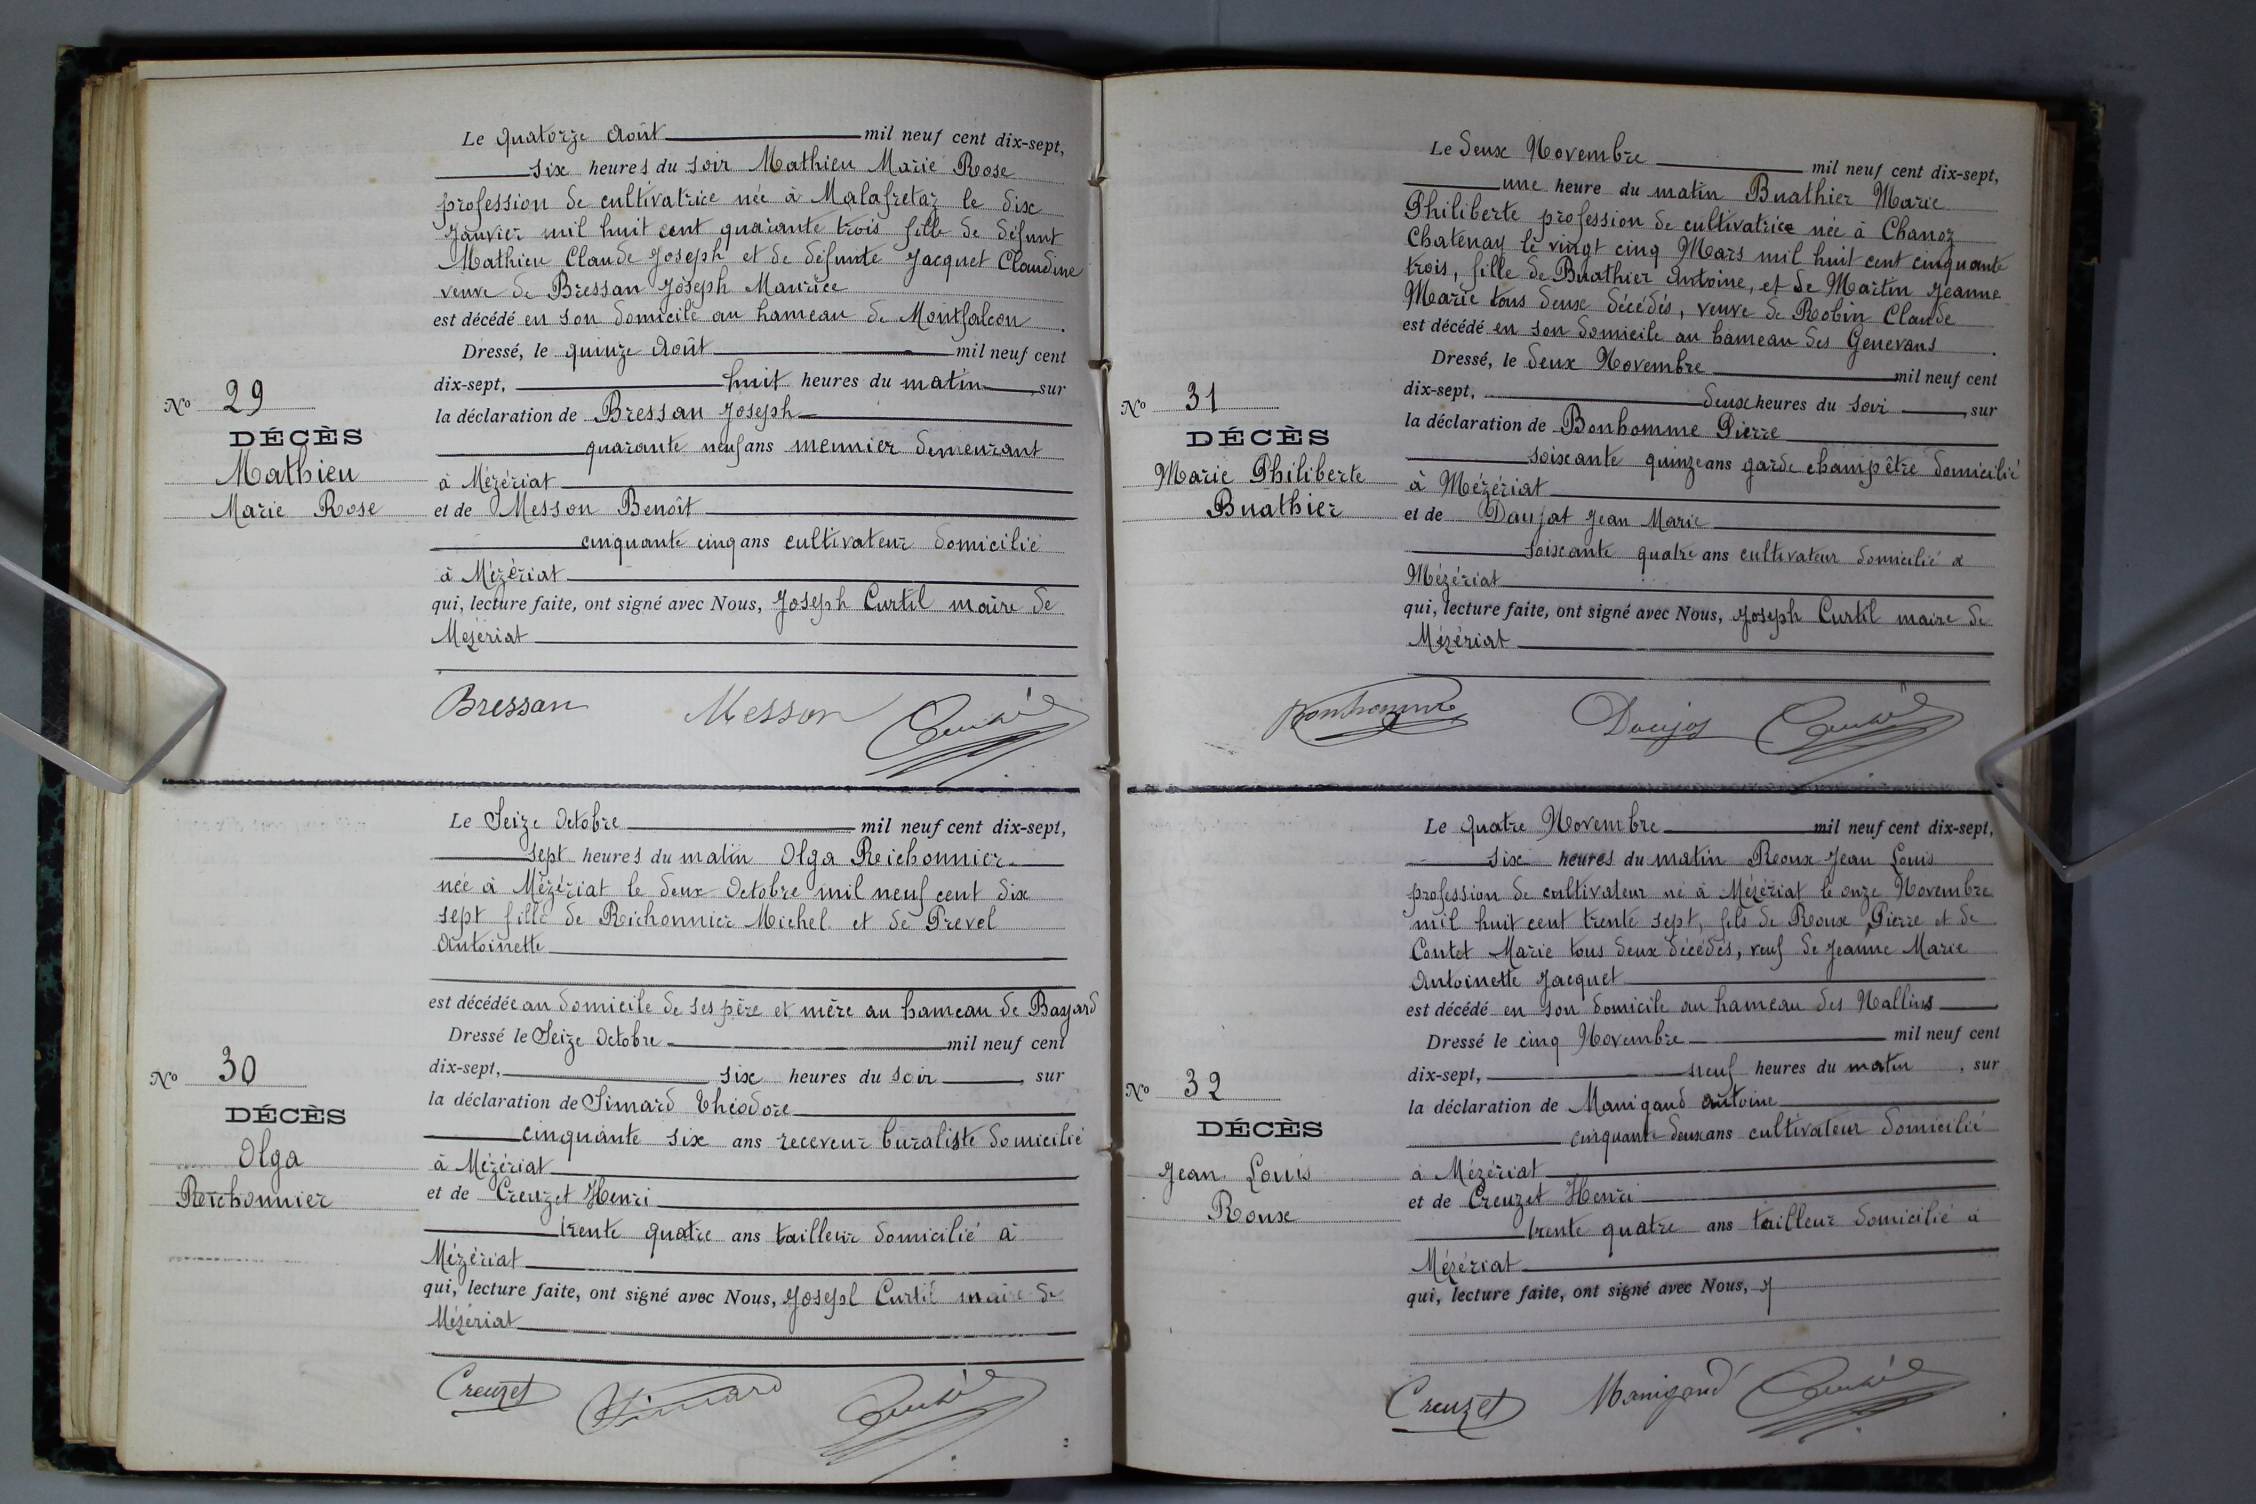 Le quatorze Août mil neuf cent dix-sept,
six heures du soir Mathieu Marie Rose
profession de cultivatrice née à Malafretaz le dix
Janvier mil huit cent quarante trois fille de défunt
Mathieu Claude Joseph et de défunte Jacquet Claudine
veuve de Bressan Joseph Maurice
est décédé en son domicile au hameau de Montfalcon.
Dressé, le quinze Août mil neuf cent
dix-sept, huit heures du matin, sur
la déclaration de Bressan Joseph
quarante neuf ans meunier demeurant
à Mézériat
et de Messon Benoît
cinquante cinq ans cultivateur domicilié
à Mézériat
qui, lecture faite, ont signé avec Nous, Joseph Curtil maire de
Mézériat
No 29
DÉCÈS
Mathieu
Marie Rose
Bressan Messon Curtil
Le Seize Octobre mil neuf cent dix-sept,
sept heures du matin Olga Reichonnier
née à Mézériat le deux Octobre mil neuf cent dix
sept fille de Richonnier Michel et de Prevel
Antoinette
est décédée au domicile de ses père et mère au hameau de Bayard
Dressé le Seize Octobre mil neuf cent
dix-sept, six heures du soir, sur
la déclaration de Simard Théodore
cinquante six ans receveur buraliste domicilié
à Mézériat
et de Creuzet Henri
trente quatre ans tailleur domicilié à
Mézériat
qui, lecture faite, ont signé avec Nous, Josepl Curtil maire de
Mézériat
No 30
DÉCÈS
Olga
Reichonnier
Creuzet Simard Curtil
Le deux Novembre mil neuf cent dix-sept,
une heure du matin Buathier Marie
Philiberte profession de cultivatrice née à Chanoz
Chatenay le vingt cinq Mars mil huit cent cinquante
trois, fille de Buathier Antoine, et de Martin Jeanne
Marie tous deux décédés, veuve de Robin Claude
est décédé en son domicile au hameau des Genevans.
Dressé, le deux Novembre mil neuf cent
dix-sept, deux heures du sori, sur
la déclaration de Bonhomme Pierre
soixante quinze ans garde champêtre domicilié
à Mézériat
et de Daujat Jean Marie
soixante quatre ans cultivateur domicilié a
Mézériat
qui, lecture faite, ont signé avec Nous, Joseph Curtil maire de
Mézériat
No 31
DÉCÈS
Marie Philiberte
Buathier
Bonhomme Daujat Curtil
Le quatre Novembre mil neuf cent dix-sept,
six heures du matin Reoux Jean Louis
profession de cultivateur né à Mézériat le onze Novembre
mil huit cent trente sept, fils de Roux Pierre et de
Contet Marie tous deux décédés, veuf de Jeanne Marie
Antoinette Jacquet
est décédé en son domicile au hameau des Nallins
Dressé le cinq Novembre mil neuf cent
dix-sept, neuf heures du matin, sur
la déclaration de Manigaud Antoine
cinquante deux ans cultivateur domicilié
à Mézériat
et de Creuzet Henri
trente quatre ans tailleur domicilié à
Mézériat
qui, lecture faite, ont signé avec Nous, J
No 32
DÉCÈS
Jean Louis
Roux
Creuzet Manigaud Curtil